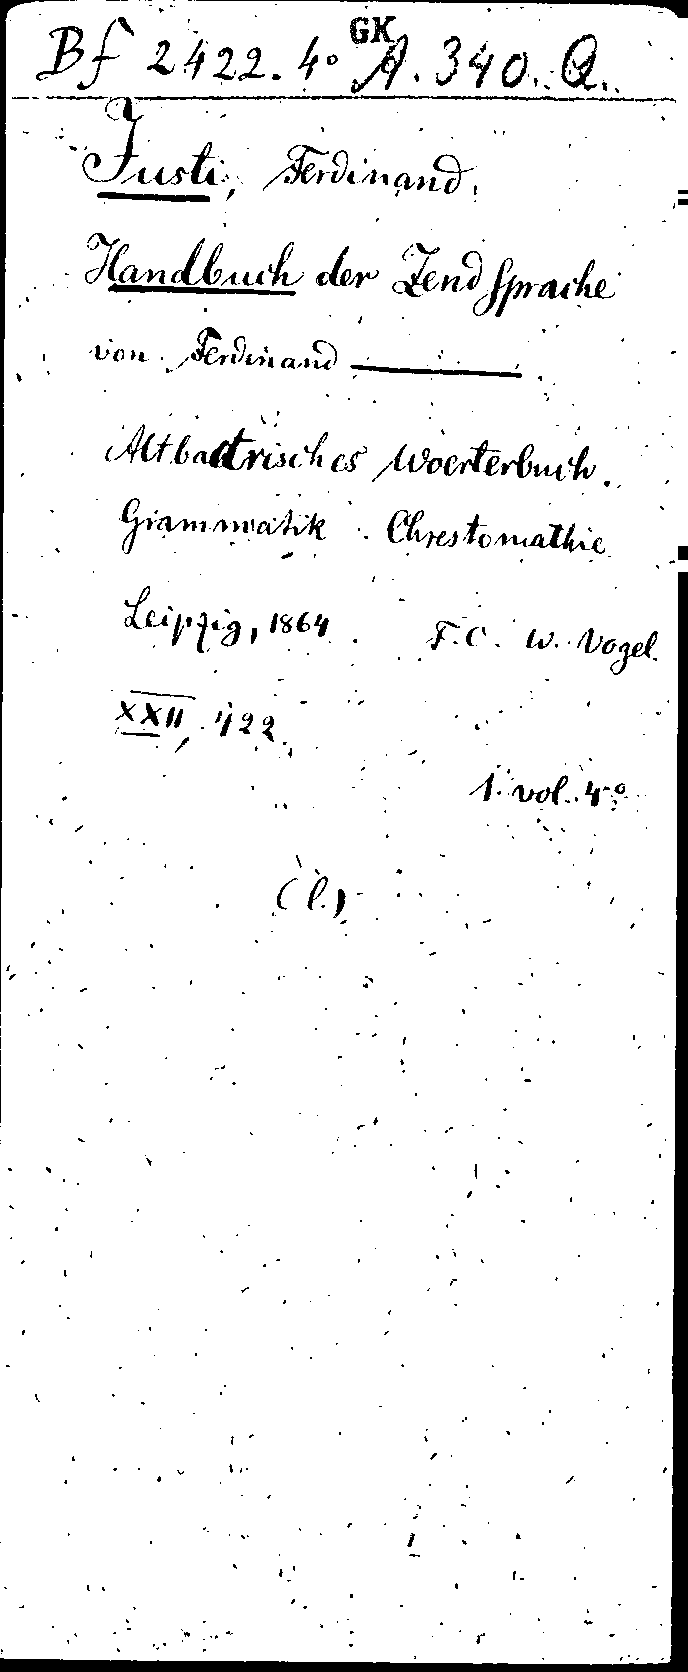 GK
Bf 2422. 4° A. 340. Q.
Justi, Ferdinand.
Handbuch der Zendsprache
von Ferdinand ———
Altbactrisches Woerterbuch.
Grammatik. Chrestomathie
Leipzig, 1864. F. C. W. Vogel.
XXII, 422.
1 vol. 4°
(l.)